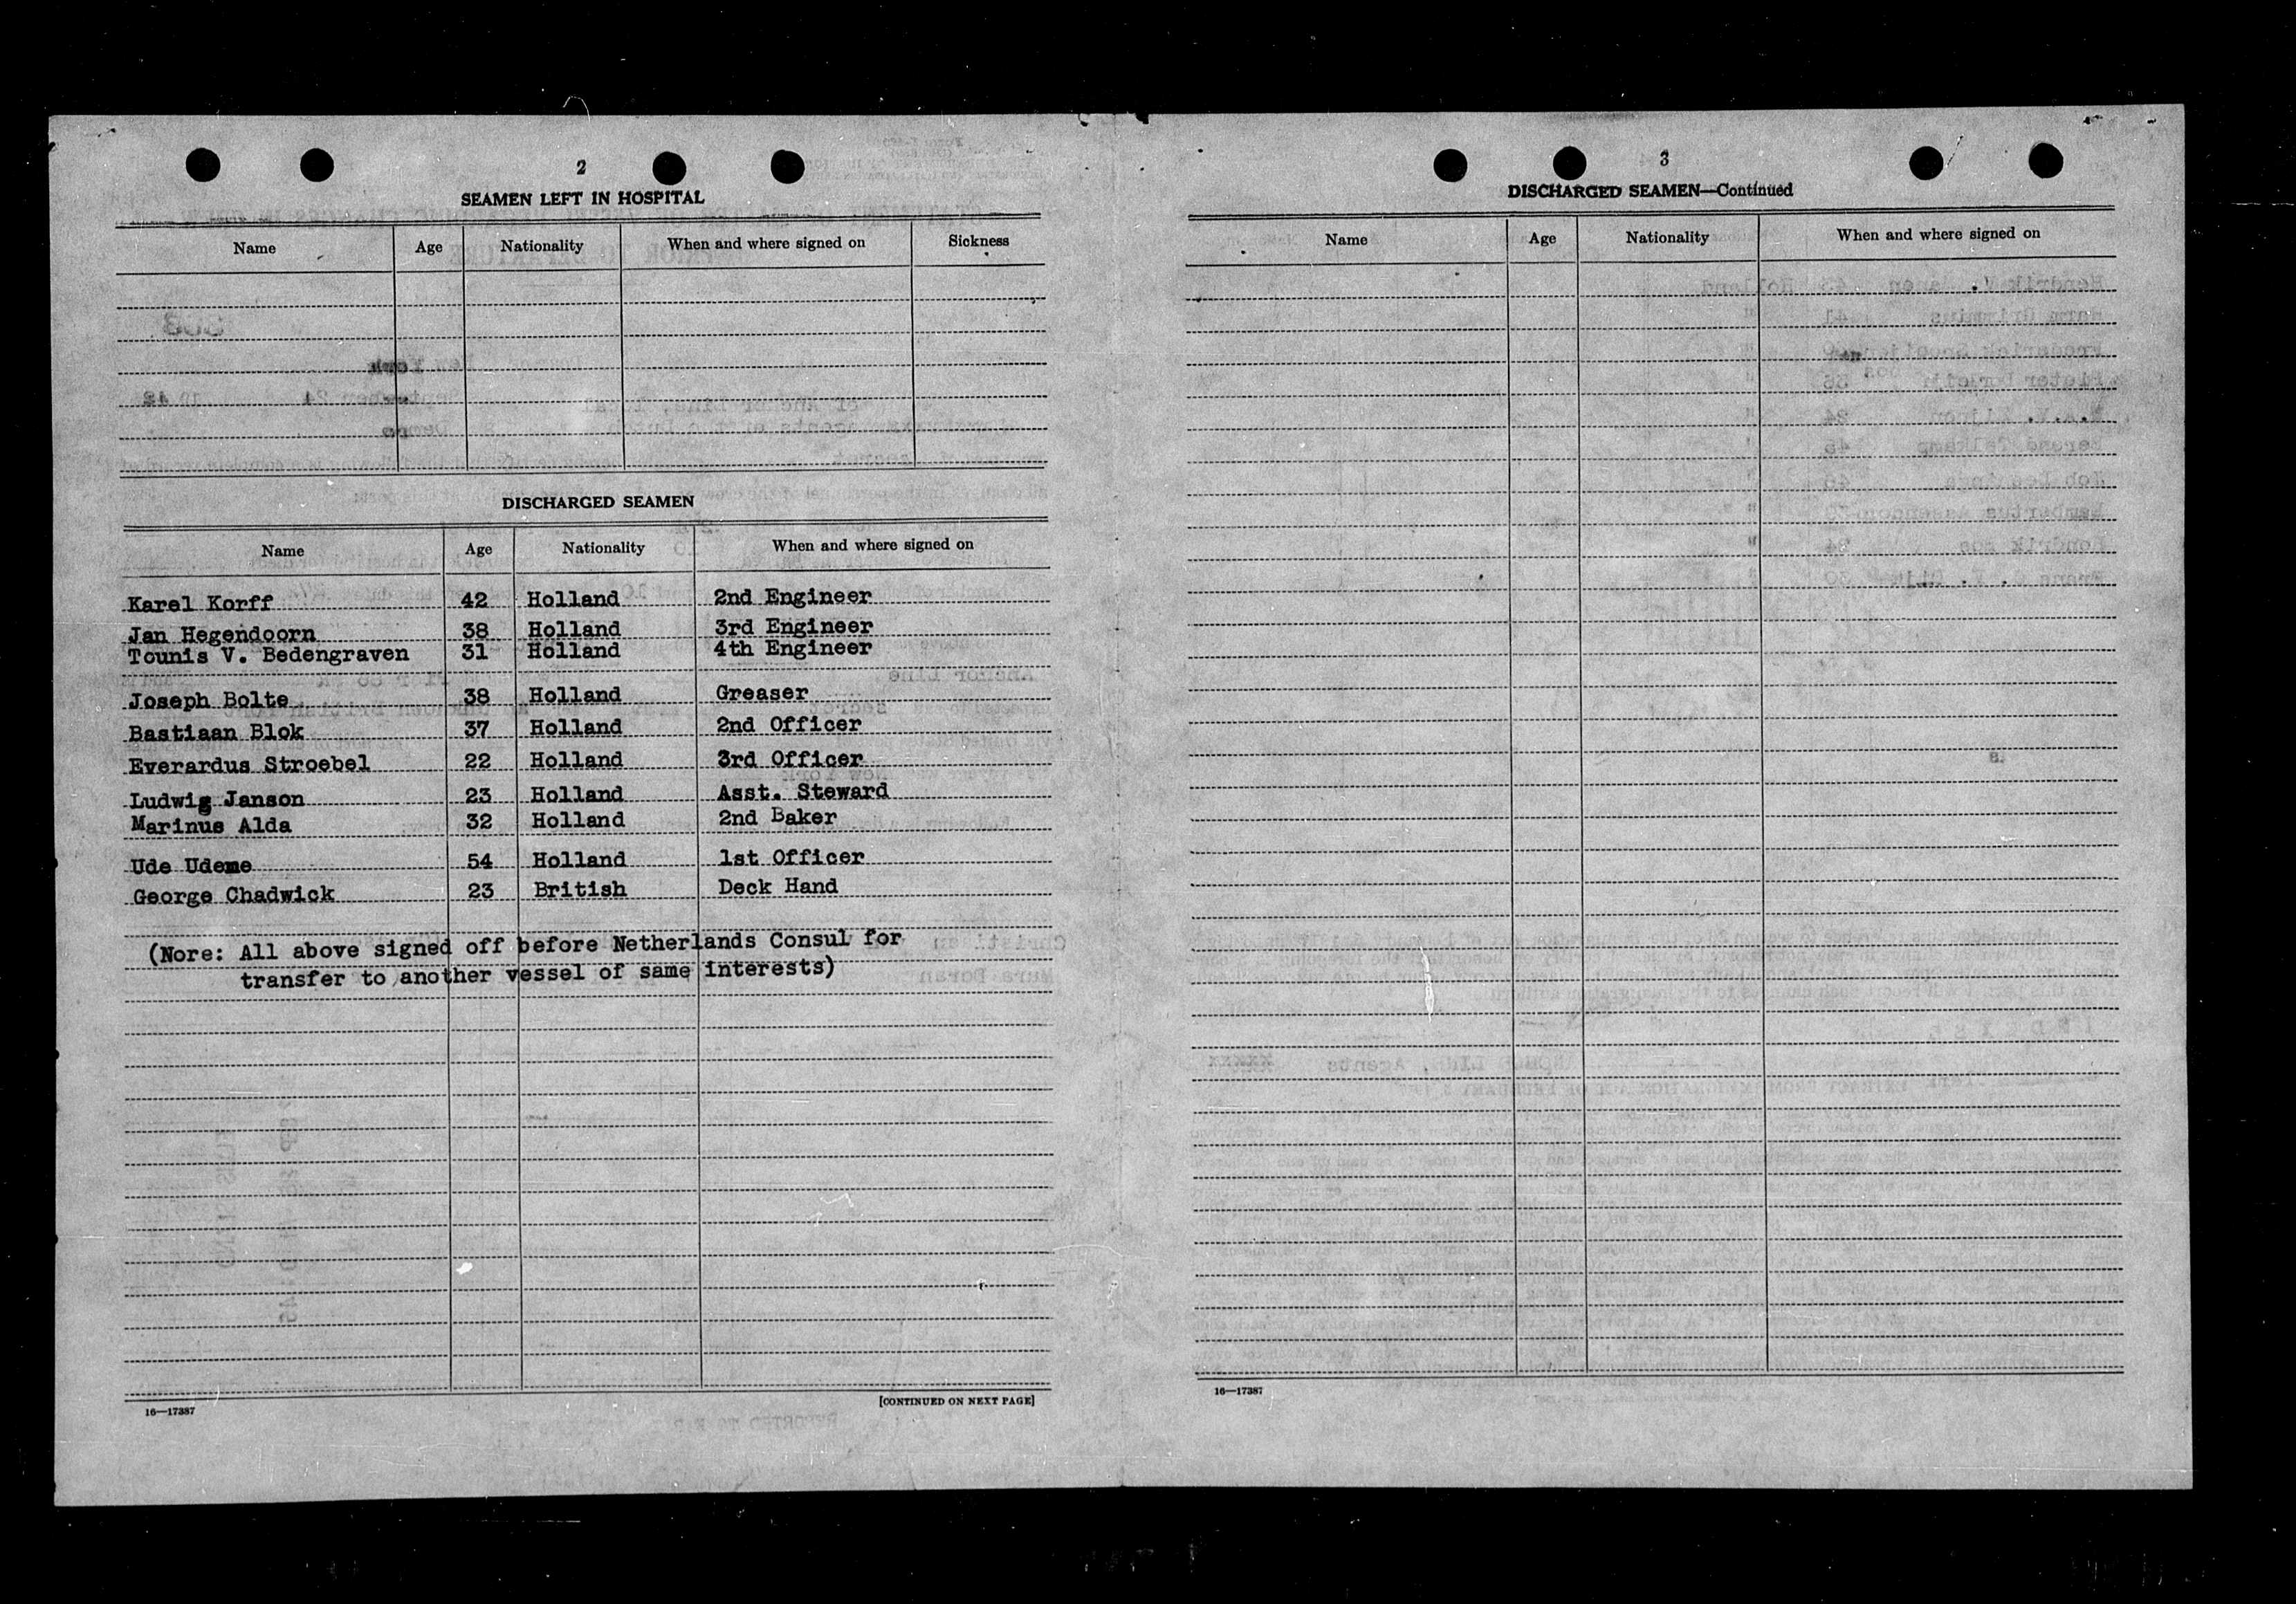 2
SEAMEN LEFT IN HOSPITAL
Name Age Nationality When and where signed on Sickness
DISCHARGED SEAMEN
Name Age Nationality When and where signed on
Karel Korff 42 Holland 2nd Engineer
Jan Hegendoorn 38 Holland 3rd Engineer
Tounis V. Bedengraven 31 Holland 4th Engineer
Joseph Bolte 38 Holland Greaser
Bastiaan Blok 37 Holland 2nd Officer
Everardus Stroebel 22 Holland 3rd Officer
Ludwig Janson 23 Holland Asst. Steward
Marinus Alda 32 Holland 2nd Baker
Ude Udeme 54 Holland 1st Officer
George Chadwick 23 British Deck Hand
(Nore: All above signed off before Netherlands Consul for
transfer to another vessel of same interests)
16—17387
[CONTINUED ON NEXT PAGE]
3
DISCHARGED SEAMEN—Continued
Name Age Nationality When and where signed on
16—17387